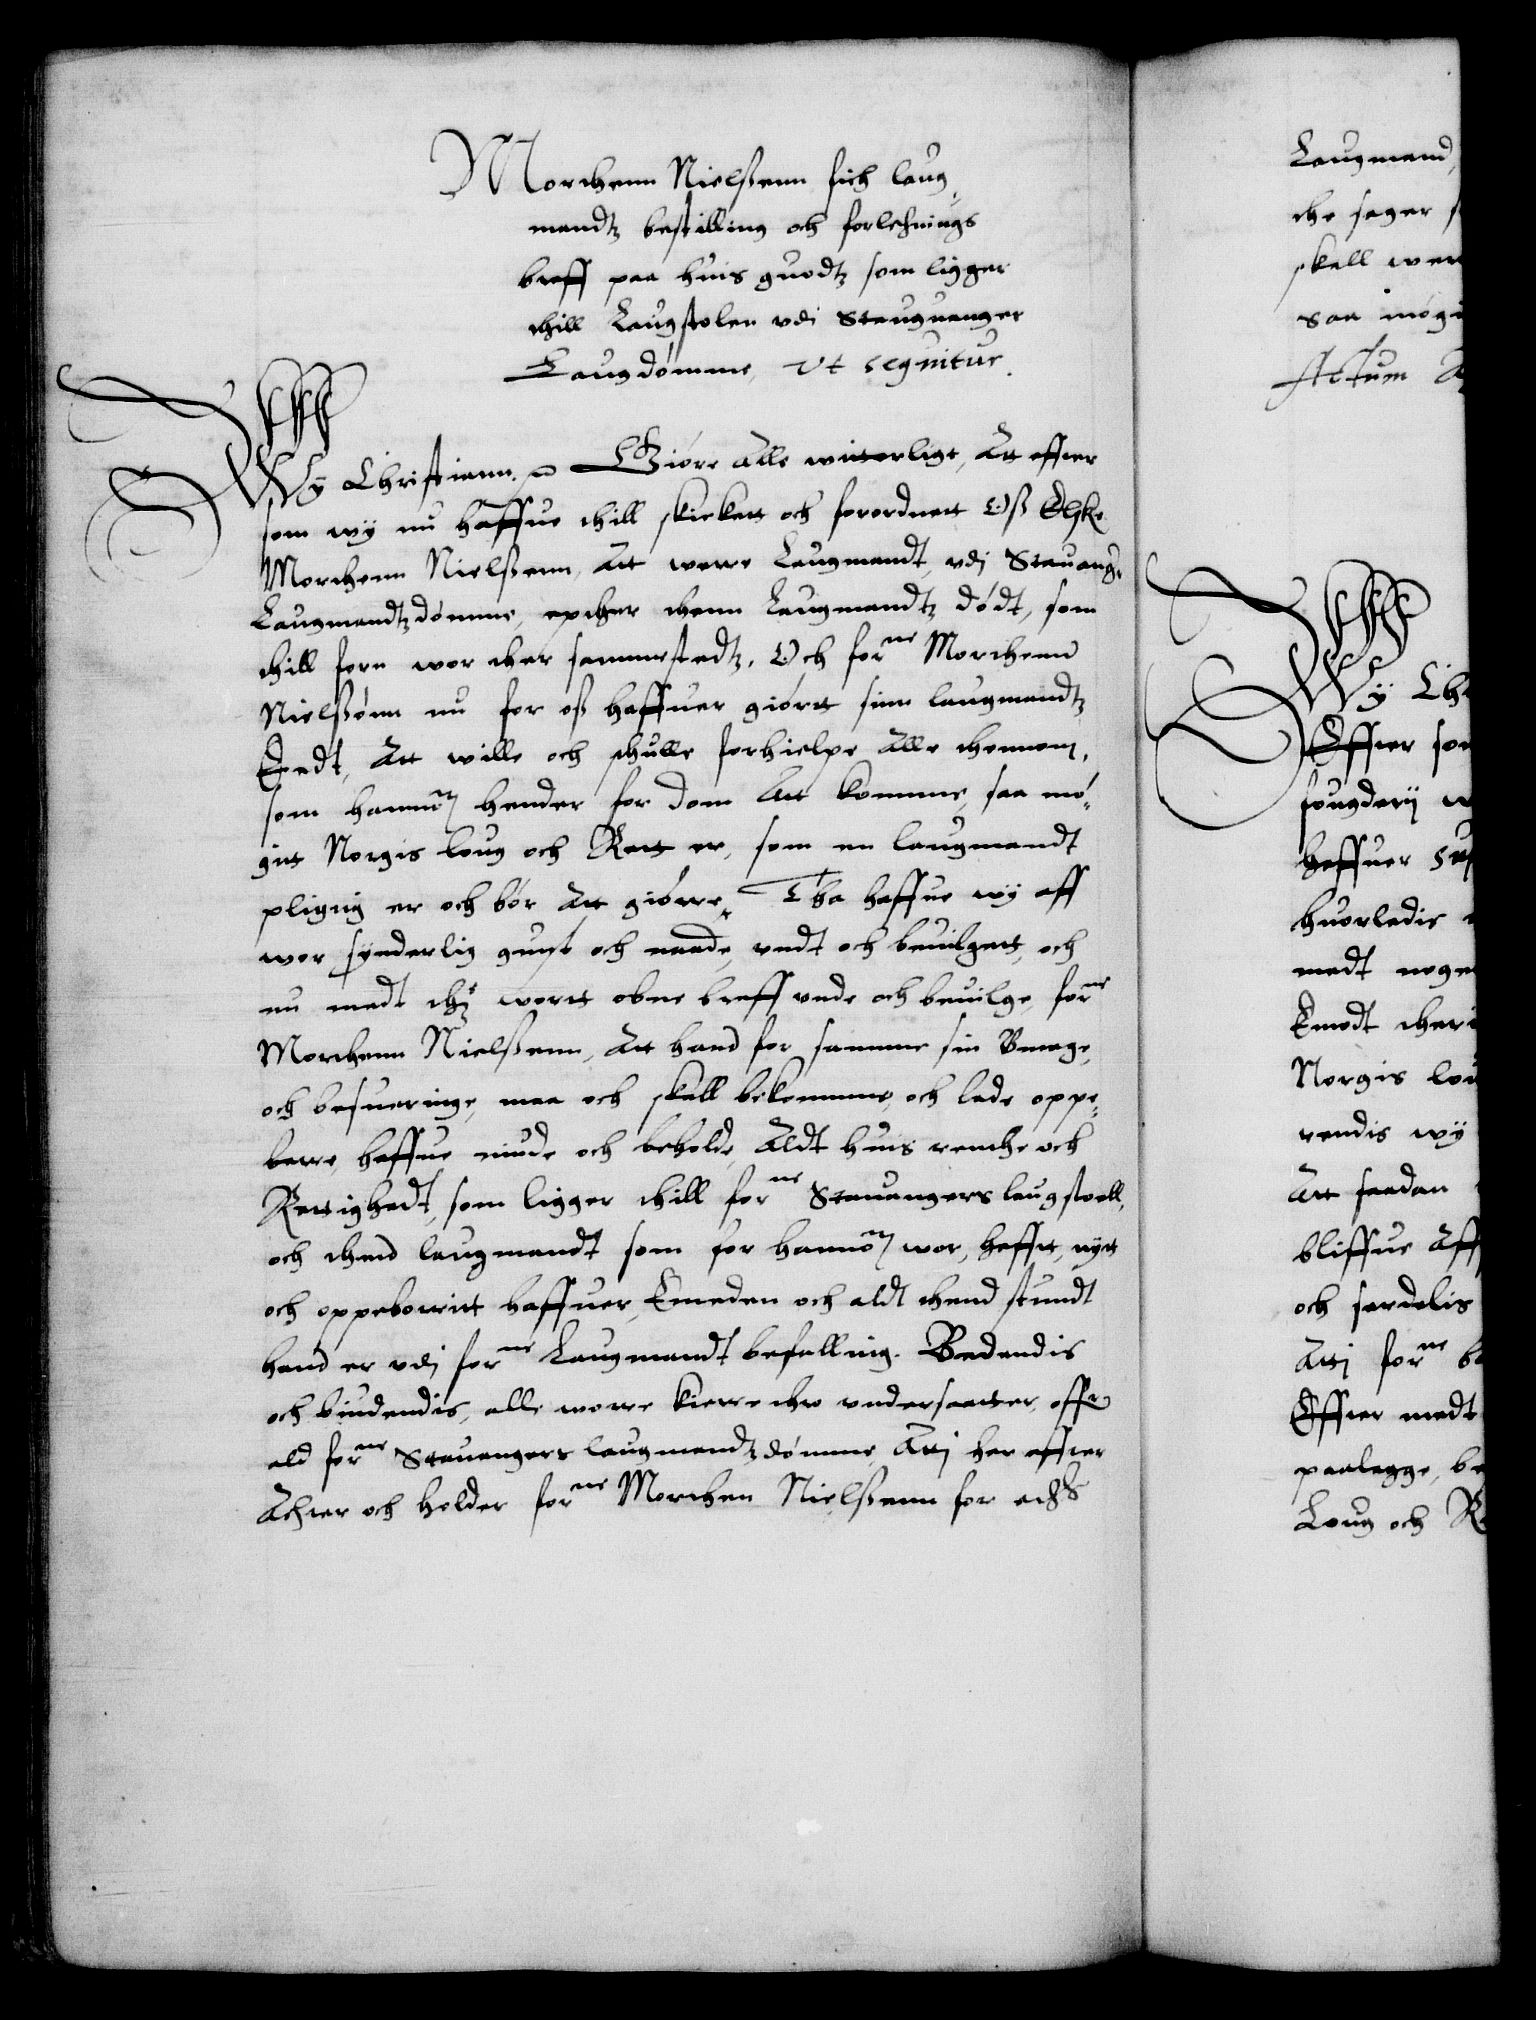 Morthenn Nielssenn fich laug-
mandtz bestilling och forlehnings
breff paa huis guodtz som ligger
thill Laugstolen vdi Stauguanger
Laugdømme, Vt sequitur.
Wy Christiann. Giøre Alle witterligt, Att effter
som wy nu haffue thill skickett och forordnett Oss Elske
Morthenn Nielssenn, Att were Laugmandt, vdj Stauang.
Laugmandtzdømme, epther thenn Laugmandtz dødt, som
thill forn wor ther sammestedtz. Och forne Morthend
Nielssønn nu for oss haffuer giørtt sinn laugmandtz
Eedt, Att wille och schulle forhielpe Alle thennom,
som hannom hender for dom Att komme, saa mø-
git Norgis loug och Rett er, som en laugmandt
pligtig er och bør Att giørre, Tha haffue wy aff
wor synderlig gunst och naade, vndt och beuilgett, och
nu medt thz wortt obne breff vnde och beuilge, forne
Morthenn Nielssenn, Att hand for samme sin Vmage,
och besueringe, maa och skall bekomme, och lade oppe-
berre, haffue niude och beholde, Aldt huis renthe och
Rettighedt, som ligger thill forne Stauangers laugstoell,
och thend laugmandt som for hannom wor, hafft, nytt
och oppeborritt haffuer, Emeden och aldt thend stundt
hand er vdj forne Laugmandt befalling. Bedendis
och biudendis, alle worre kierre thro vndersaatter, offr
ald forne Stauangers laugmandtzdømme, Attj her effter
Achter och holder forne Morthen Nielssenn for eders
Laugmand,
the sager
skall wer
saa møgi
Actum A
Wÿ Ch
Effter som
fougderij w
haffuer
huorledis
medt noge
Emodt ther
Norgis lou
rendis wÿ
Att saadan
bliffue Aff
och serdelis
Attj forne be
Effter medt
paalegge, be
Loug och Re